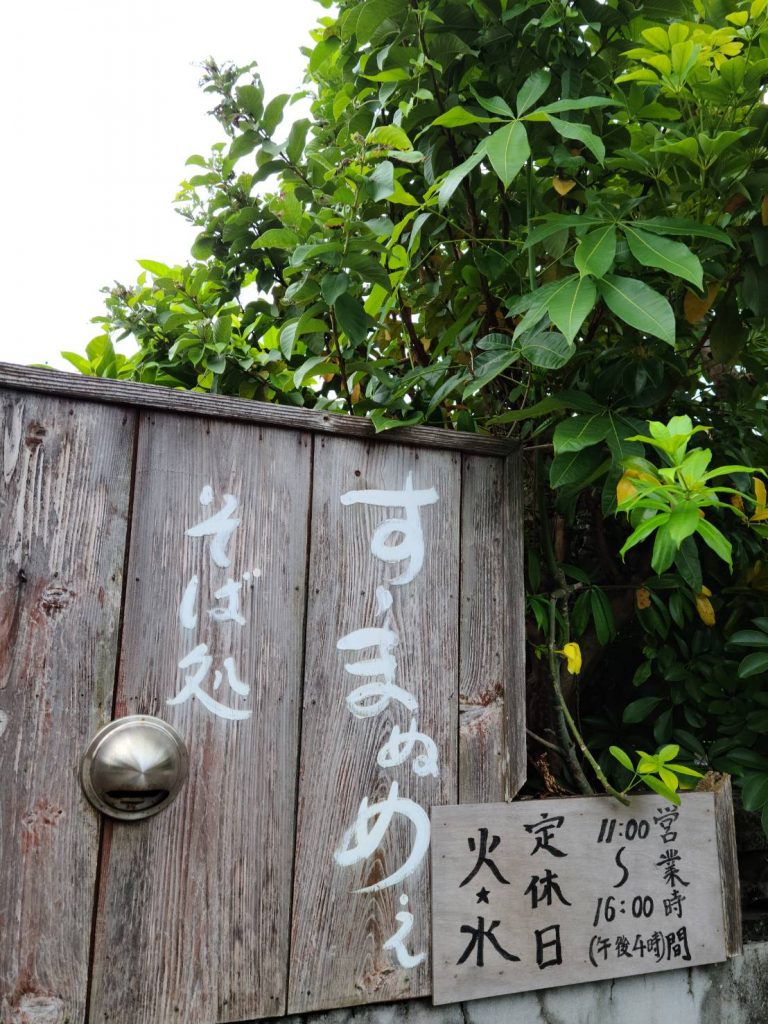 すーまぬめぇ
そば処
営業時間
11:00
〜
16:00
(午後4時)
定休日
火★水